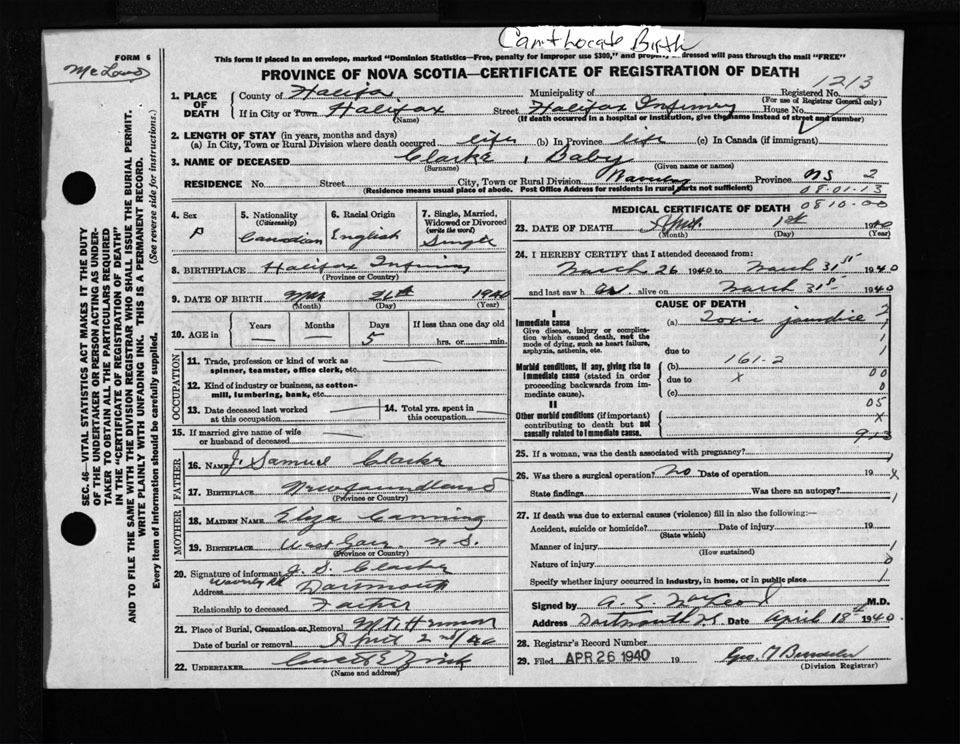 Can't locate Birth
FORM 6
This form if placed in an envelope, marked "Dominion Statistics—Free, penalty for improper use $300," and properly addressed will pass through the mail "FREE"
PROVINCE OF NOVA SCOTIA—CERTIFICATE OF REGISTRATION OF DEATH
1213
1. PLACE OF DEATH County of Halifax Municipality of Registered No.
(For use of Registrar General only)
If in City or Town Halifax Street Halifax Infirmary House No.
(Name) (If death occurred in a hospital or institution, give the name instead of street and number)
2. LENGTH OF STAY (in years, months and days)
(a) In City, Town or Rural Division where death occurred life (b) In Province life (c) In Canada (if immigrant)
3. NAME OF DECEASED Clarke, Baby
(Surname) (Given name or names)
RESIDENCE No. Street City, Town or Rural Division Waverley Province NS 2
(Residence means usual place of abode. Post Office Address for residents in rural parts not sufficient) 08-01-13
0810-00
4. Sex
5. Nationality (Citizenship) Canadian
6. Racial Origin English
7. Single, Married, Widowed or Divorced (write the word) Single
8. BIRTHPLACE Halifax Infirmary
(Province or Country)
9. DATE OF BIRTH 1940
(Month) (Day) (Year)
10. AGE in Years — Months — Days 5 If less than one day old hrs. or min.
OCCUPATION
11. Trade, profession or kind of work as spinner, teamster, office clerk, etc.
12. Kind of industry or business, as cotton-mill, lumbering, bank, etc.
13. Date deceased last worked at this occupation
14. Total yrs. spent in this occupation
15. If married give name of wife or husband of deceased
FATHER
16. NAME J. Samuel Clarke
17. BIRTHPLACE Newfoundland
(Province or Country)
MOTHER
18. MAIDEN NAME Eliza Canning
19. BIRTHPLACE N.S.
(Province or Country)
20. Signature of informant J. S. Clarke
Address Waverley Rd Dartmouth
Relationship to deceased Father
21. Place of Burial, Cremation or Removal Mt. Hermon
Date of burial or removal April 2nd/40
22. UNDERTAKER Zink
(Name and address)
MEDICAL CERTIFICATE OF DEATH
23. DATE OF DEATH April 1st 1940
(Month) (Day) (Year)
24. I HEREBY CERTIFY that I attended deceased from:
March 26 1940 to March 31st 1940
and last saw h alive on March 31st 1940
CAUSE OF DEATH
I
Immediate cause (a) Toxic jaundice
Give disease, injury or complication which caused death, not the mode of dying, such as heart failure, asphyxia, asthenia, etc.
due to
161-2
Morbid conditions, if any, giving rise to immediate cause (stated in order proceeding backwards from immediate cause). (b)
due to X
(c)
II
Other morbid conditions (if important) contributing to death but not causally related to immediate cause.
25. If a woman, was the death associated with pregnancy?
26. Was there a surgical operation? No Date of operation 19
State findings Was there an autopsy?
27. If death was due to external causes (violence) fill in also the following:—
Accident, suicide or homicide? Date of injury 19
(State which)
Manner of injury
(How sustained)
Nature of injury
Specify whether injury occurred in industry, in home, or in public place
Signed by M.D.
Address Dartmouth N.S. Date April 18th 1940
28. Registrar's Record Number
29. Filed APR 26 1940 19
(Division Registrar)
SEC. 46—VITAL STATISTICS ACT MAKES IT THE DUTY OF THE UNDERTAKER OR PERSON ACTING AS UNDERTAKER TO OBTAIN ALL THE PARTICULARS REQUIRED IN THE "CERTIFICATE OF REGISTRATION OF DEATH" AND TO FILE THE SAME WITH THE DIVISION REGISTRAR WHO SHALL ISSUE THE BURIAL PERMIT.
WRITE PLAINLY WITH UNFADING INK. THIS IS A PERMANENT RECORD.
Every item of Information should be carefully supplied. (See reverse side for instructions.)